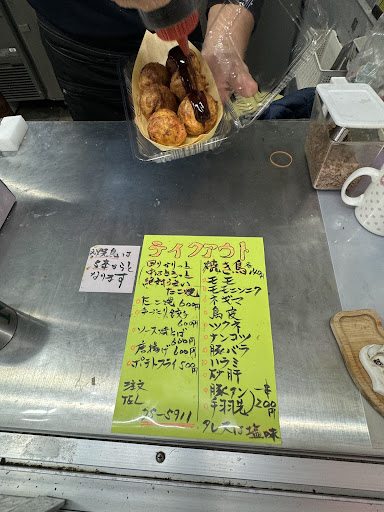 焼鳥は
5本からと
なります
テイクアウト
たこ焼
たこ焼 600円
600円
ソース焼そば
600円
唐揚げ 600円
ポテトフライ 500円
注文
TEL
25-5911
焼き鳥
モモ
モモニンニク
ネギマ
鳥皮
ツクネ
ナンコツ
豚バラ
ハラミ
砂肝
豚タン
手羽先
一本
200円
タレ又は塩味